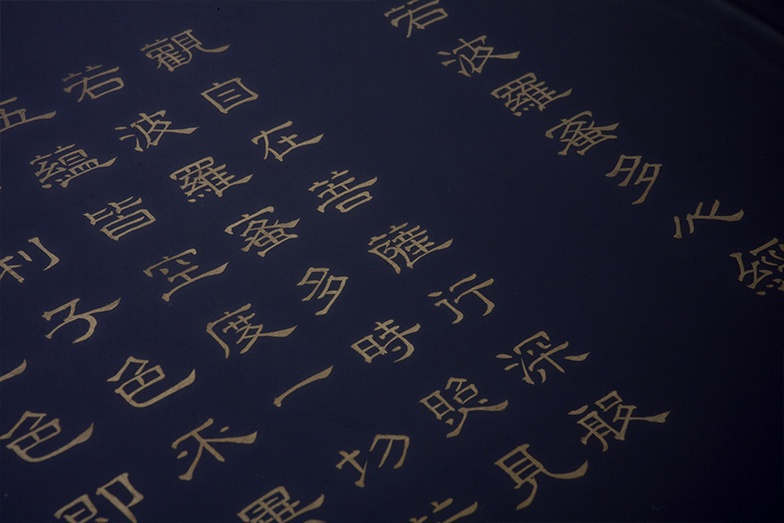 若波羅蜜多心經
觀自在菩薩行深般
若波羅蜜多時照見
五蘊皆空度一切苦
利子色不異
色即